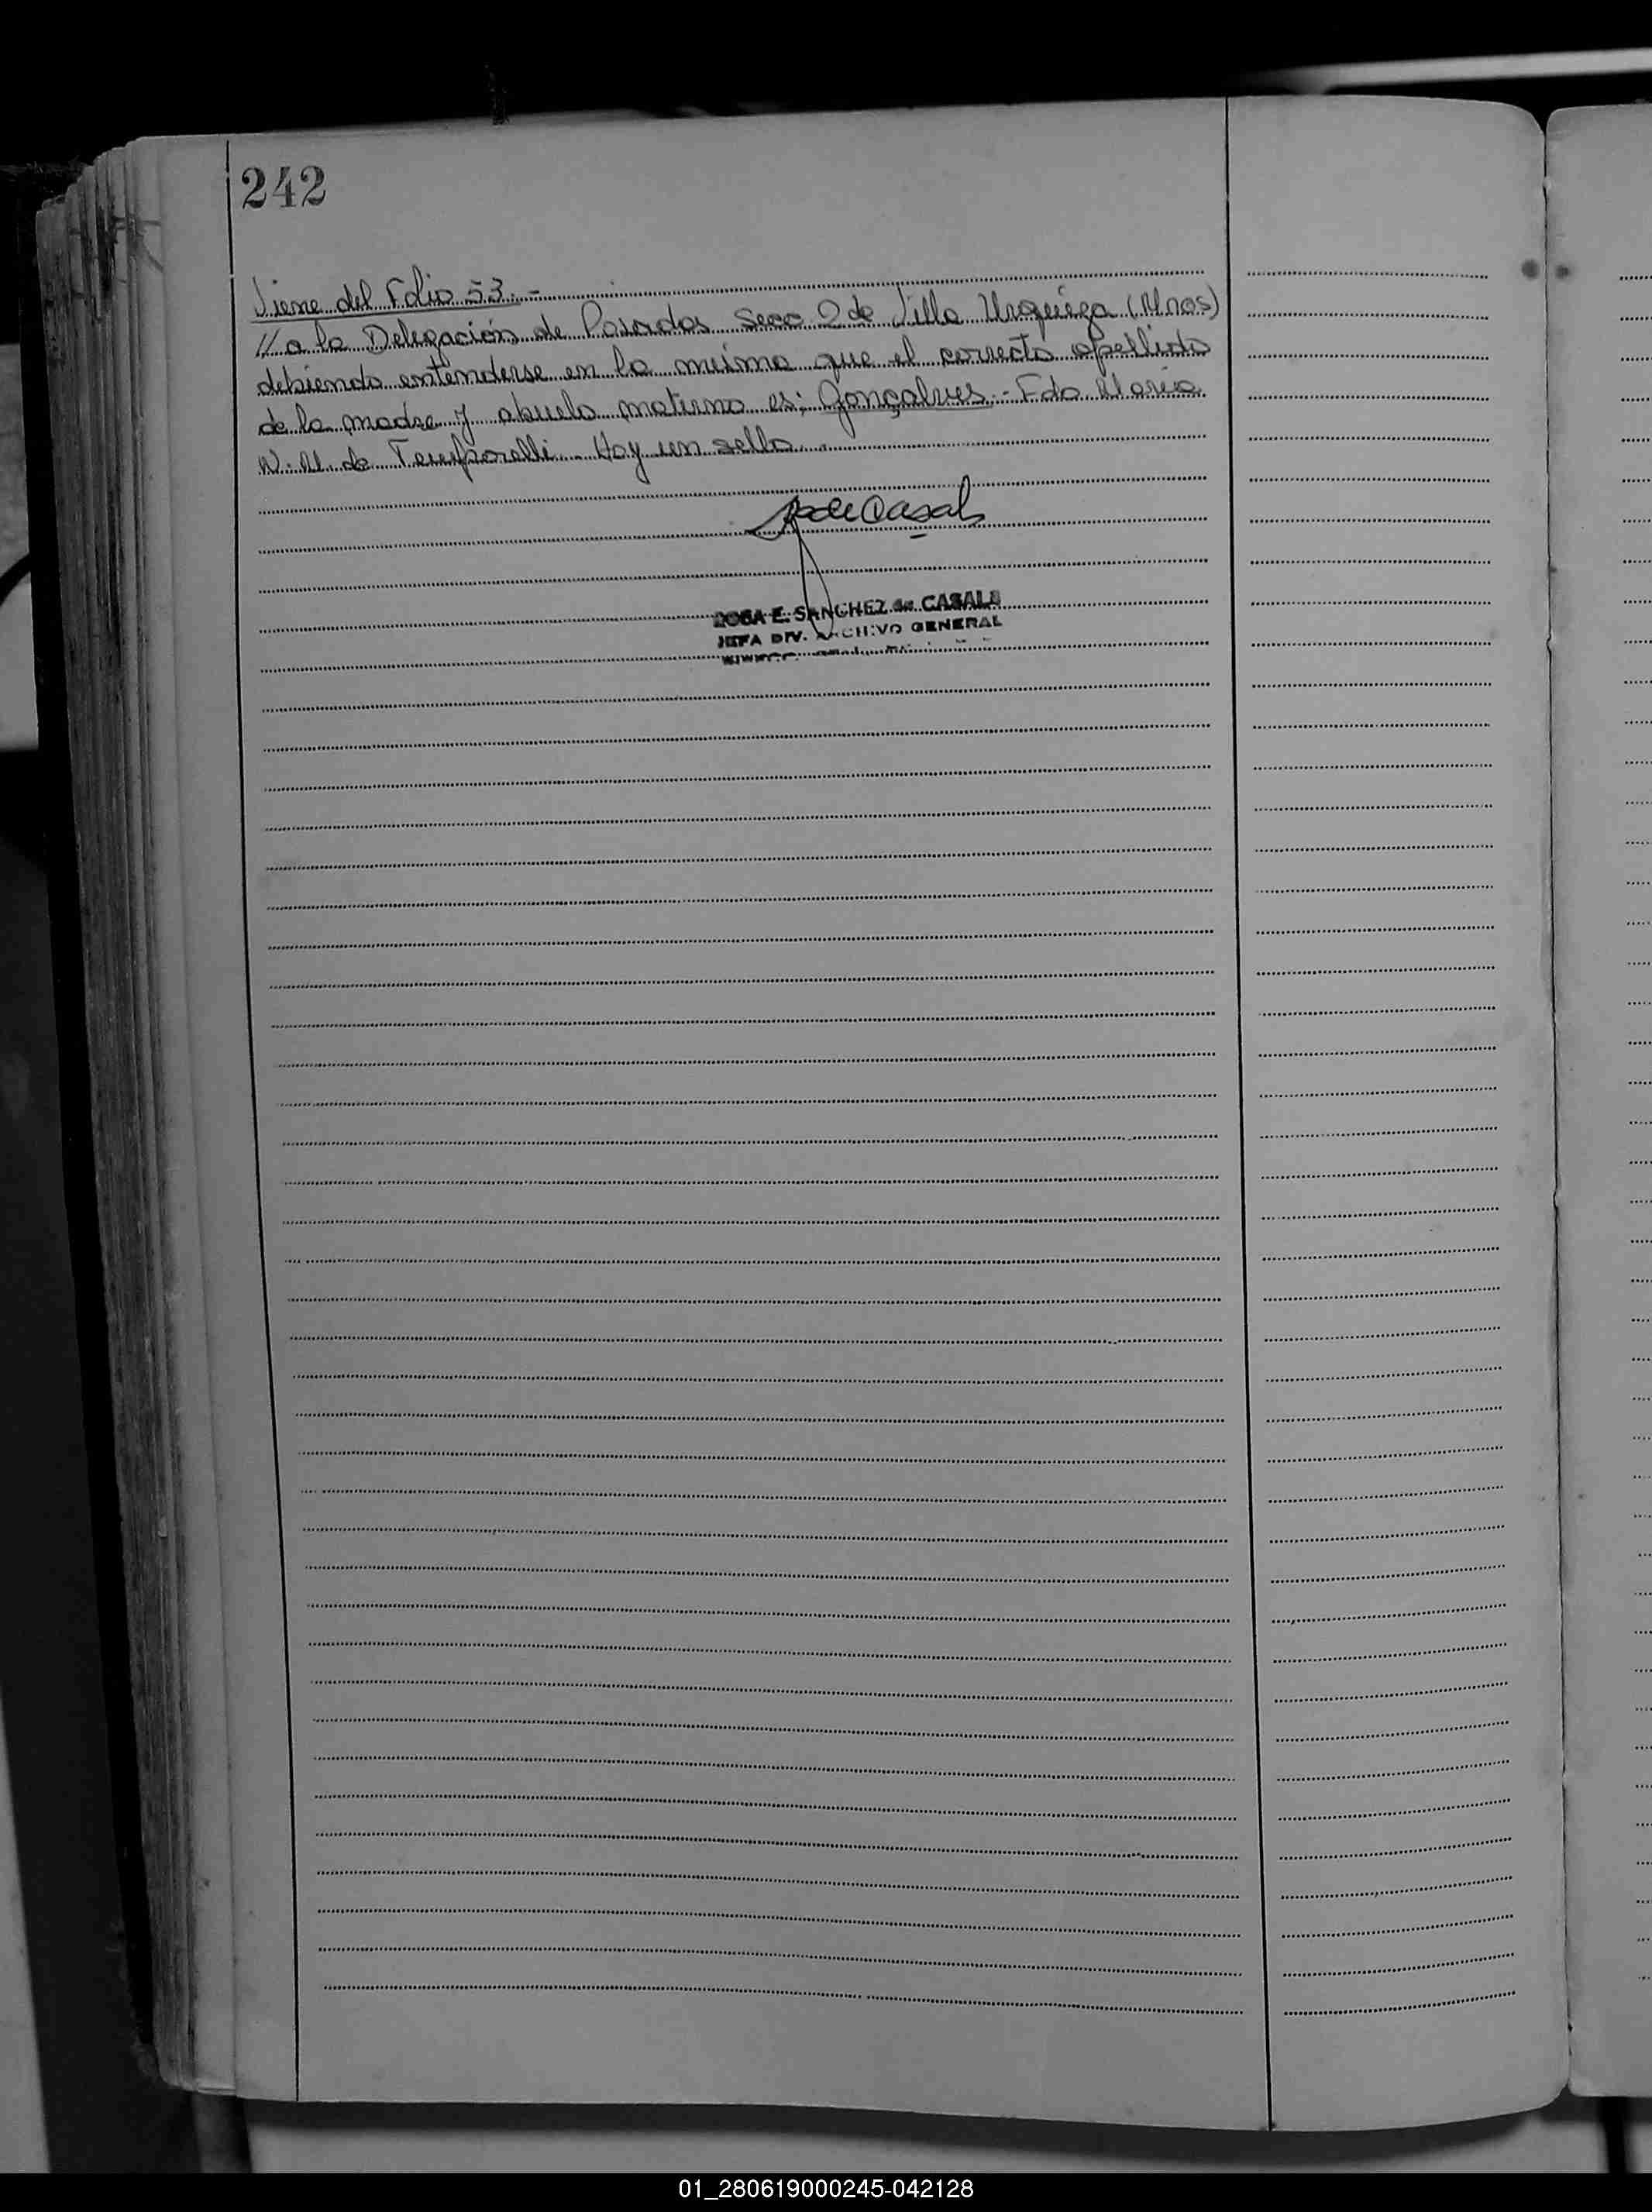 242
Viene del Folio 53.-
// a la Delegación de Posadas Secc 2 de Villa Urquiza (Mnes)
debiendo entenderse en la misma que el correcto apellido
de la madre y abuelo materno es: Gonçalves.- Fdo Maria
N. M. de Temporelli. Hay un sello.
RdeCasals
ROSA E. SANCHEZ de CASALS
JEFA DIV. ARCHIVO GENERAL
01_280619000245-042128